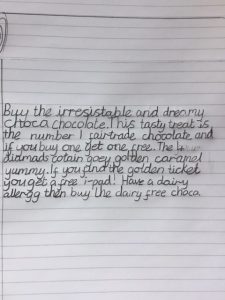 Buy the irresistable and dreamy
choca chocolate. This tasty treat is
the number 1 fairtrade chocolate and
if you buy one get one free. The
cotain ooey golden caramel
yummy. If you find the golden ticket
you get a free i-pad! Have a dairy
allergy then buy the dairy free choca